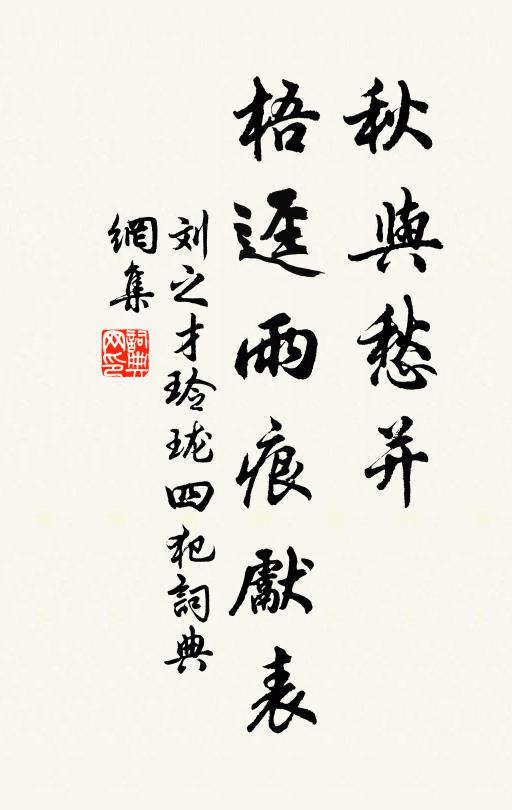 秋與愁并
梧逕雨痕獻表
刘之才玲珑四犯詞典
網集
詞典
网印